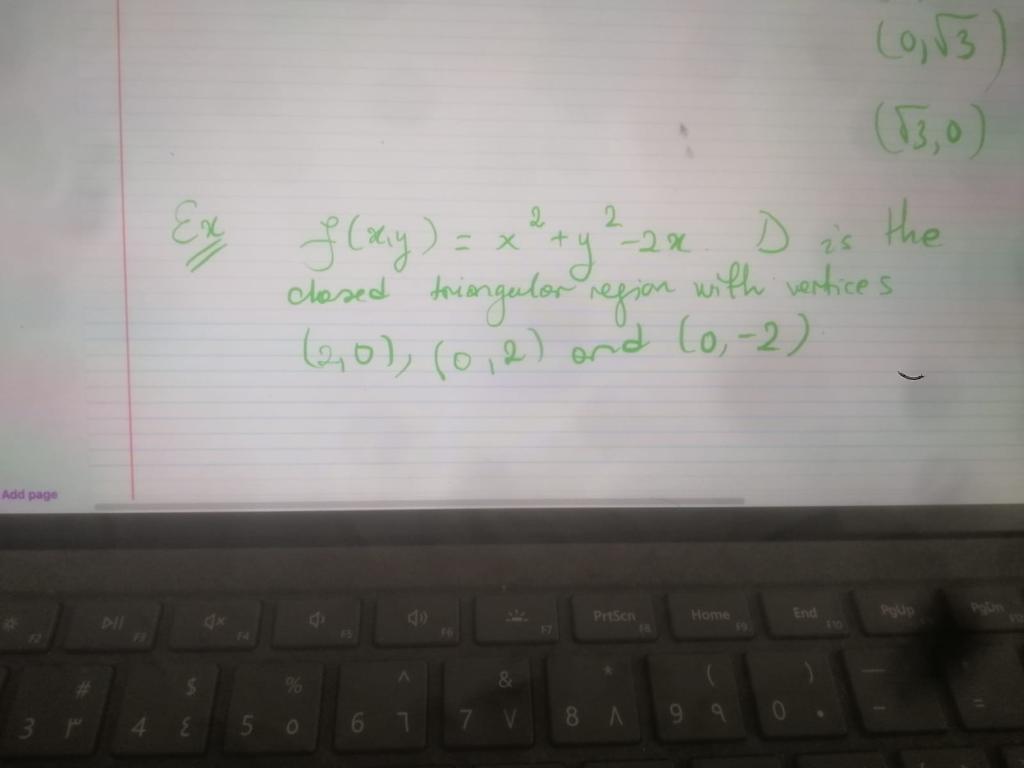 (0,√3)
(√3,0)
Ex f(x,y) = x²+y²-2x. D is the
closed triangular region with vertices
(2,0), (0,2) and (0,-2)
Add page
F2 F3 F4 F5 F6 F7 PrtScn F8 Home F9 End F10 PgUp PgDn
# $ % ^ & * ( ) — 
3 ٣ 4 ٤ 5 ٥ 6 ٦ 7 ٧ 8 ٨ 9 ٩ 0 ٠ - =